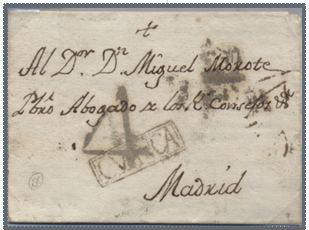 Al Dor. Dn. Miguel Morote
Pbro. Abogado de los Rs. Consejos &a
4
CUENCA
Madrid